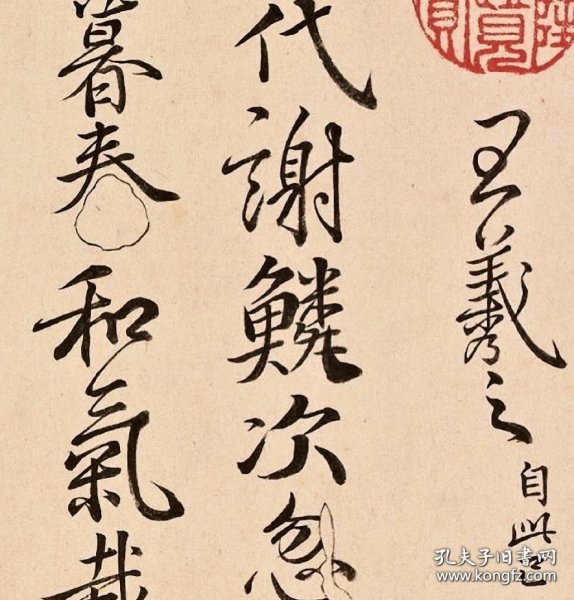 王羲之
自此
代謝鱗次忽
暮春和氣載
孔夫子旧书网
www.kongfz.com